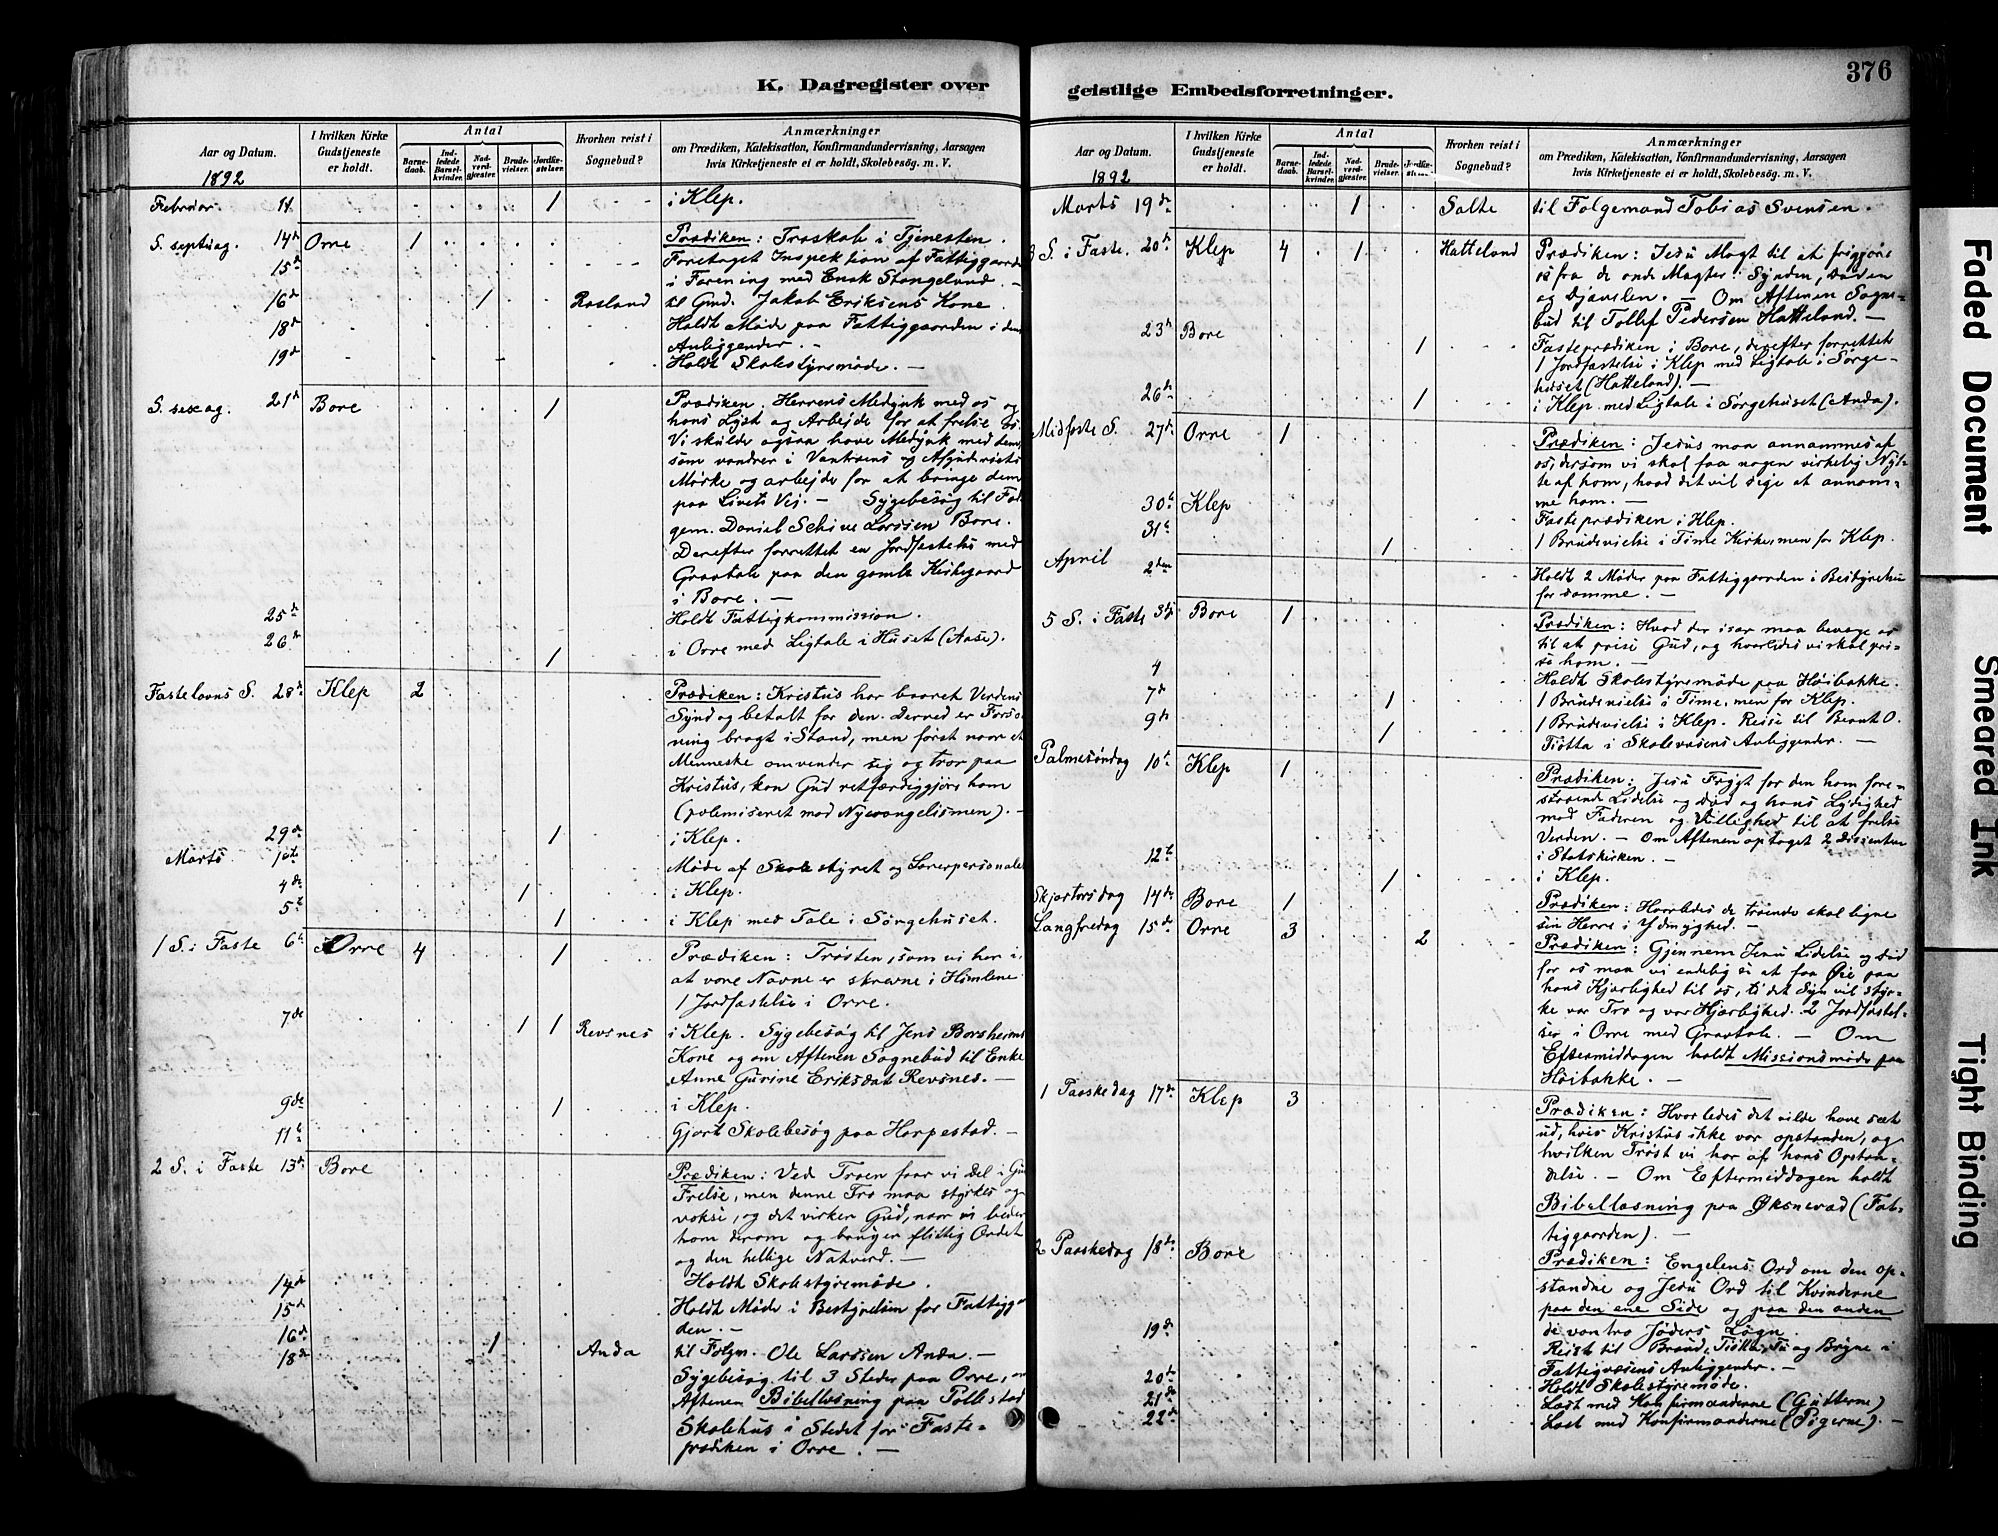 K. Dagregister over
Aar og Datum.
1892
I hvilken Kirke Gudstjeneste er holdt.
Antal
Barnedaab.
Indledede Barselkvinder.
Nadverdgjæster.
Brudevielser.
Jordfæstelser.
Hvorhen reist i Sognebud?
Anmærkninger
om Prædiken, Katekisation, Konfirmandundervisning, Aarsagen
hvis Kirketjeneste ei er holdt, Skolebesög. m. V.
Februar 11 1 i Klep.
S. septuag. 14de Orre 1 Prædiken: Troskab i Tjenesten.
15de Foretaget Inspektion af Fattiggaarden
i Forening med Enok Stangeland.
16de 1 Rosland til Gmd. Jakob Eriksens Kone.
18de Holdt Møde paa Fattiggaarden i dens
Anliggender. —
19de Holdt Skolestyrsmøde. —
S. sexag. 21de Bore 1 Prædiken. Herrens Medynk med os og
hans Lyst og Arbejde for at frelse os.
Vi skulde ogsaa have Medynk med dem,
som vandrer i Vantroens og
Mørke og arbejde for at bringe dem
paa Livets Vej. — Sygebesøg til
gem. Daniel Schive Larssen Bore.
Derefter forrettet en Jordfæstelse med
Gravtale paa den gamle Kirkegaard
i Bore. —
25de Holdt Fattigkommission.
26de 1 i Orre med Ligtale i Huset (Aase).
Fastelavns S. 28de Klep 2 Prædiken: Kristus har baaret Verdens
Synd og betalt for den. Derved er Forso-
ning bragt i Stand, men først naar et
Menneske omvender sig og tror paa
Kristus, kan Gud retfærdiggjøre ham
(polemiseret mod Nyevangelismen). —
29de 1 i Klep.
Marts 1ste Møde af Skolestyret og Lærerpersonalet
4de 1 i Klep.
5te 1 i Klep med Tale i Sørgehuset.
1 S. i Faste 6te Orre 4 1 Prædiken: Trøsten, som vi har i,
at vore Navne er skrevne i Himlene
1 Jordfæstelse i Orre.
7de 1 1 Revsnes i Klep. Sygebesøg til Jens Borsheims
Kone og om Aftenen Sognebud til Enke
Anne Gurine Eriksdat Revsnes. —
9de 1 i Klep.
11te Gjort Skolebesøg paa Horpestad. —
2 S. i Faste 13de Bore Prædiken: Ved Troen faar vi Del i Guds
Frelse, men denne Tro maa styrkes og
vokse, og det virker Gud, naar vi beder
ham derom og bruger flittig Ordet
og den hellige Natverd. —
14de Holdt Skolestyremøde.
15de Holdt Møde i Bestyrelsen for Fattigg
den. —
16de 1 Anda til Folgm. Ole Larssen Anda. —
18de Sygebesøg til 3 Steder paa Orre, om
Aftenen Bibellæsning paa Pollestad
Skolehus i Stedet for Faste-
prædiken i Orre. —
geistlige Embedsforretninger.
376
Aar og Datum.
1892
I hvilken Kirke Gudstjeneste er holdt.
Antal
Barnedaab.
Indledede Barselkvinder.
Nadverdgjæster.
Brudevielser.
Jordfæstelser.
Hvorhen reist i Sognebud?
Anmærkninger
om Prædiken, Katekisation, Konfirmandundervisning, Aarsagen
hvis Kirketjeneste ei er holdt, Skolebesög. m. V.
Marts 19de 1 Salte til Folgemand Tobias Svensen.
3 S. i Faste. 20de Klep 4 1 Hatteland Prædiken: Jesu Magt til at frigjøre
os fra de onde Magter i Synden, Døden
og Djævelen. — Om Aftenen Sogne-
bud til Tollef Pedersen Hatteland. —
23de Bore 1 Fasteprædiken i Bore, derefter forrettet
1 Jordfæstelse i Klep med Ligtale i Sørge-
huset (Hatteland). —
26de 1 i Klep med Ligtale i Sørgehuset (Anda).
Midfaste S. 27de Orre 1 Prædiken: Jesus maa annammes af
os, dersom vi skal faa nogen virkelig Nyt-
te af ham, hvad det vil sige at annam-
me ham. —
30te Klep Fasteprædiken i Klep.
31te 1 1 Brudevielse i Time Kirke, men for Klep.
April 2den Holdt 2 Møder paa Fattiggaarden i Bestyrelsen
for samme. —
5 S. i Faste 3die Bore 1 Prædiken: Hvad der især maa bevæge os
til at prise Gud, og hvorledes vi skal pri-
se ham. —
4 Holdt Skolestyremøde paa Høibakke.
7de 1 1 Brudevielse i Time, men for Klep.
9de 1 1 Brudevielse i Klep. Reise til Bernt O.
Tjøtta i Skolevæsens Anliggender. —
Palmesøndag 10de Klep 1 Prædiken: Jesu Frygt for den ham fore-
staaende Lidelse og Død og hans Lydighed
mod Faderen og Villighed til at frelse
Verden. — Om Aftenen optaget 2 Dissentere
i Statskirken. —
12te 1 i Klep.
Skjærtorsdag 14de Bore 1 Prædiken: Hvorledes de troende skal ligne
sin Herre i Ydmyghed. —
Langfredag 15de Orre 3 2 Prædiken: Gjennem Jesu Lidelse og Død
for os maa vi endelig se at faa Øie paa
hans Kjærlighed til os, ti det Syn vil styr-
ke vor Tro og vor Kjærlighed. 2 Jordfæstel-
ser i Orre med Gravtale. — Om
Eftermiddagen holdt Missionsmøde paa
Høibakke. —
1 Paaskedag 17de Klep 3 Prædiken: Hvorledes det vilde have sæt
ud, hvis Kristus ikke var opstanden, og
hvilken Trøst vi har af hans Opstan-
delse. — Om Eftermiddagen holdt
Bibellæsning paa Øksnevad (Fat-
tiggaarden). —
2 Paaskedag 18de Bore Prædiken: Engelens Ord om den op-
standne og Jesu Ord til Kvinderne
paa den ene Side og paa den anden
de vantro Jøders Løgn.
19de Reist til Braud, Tjøtta, Tu og Bryne i
Fattigvæsens Anliggender. —
20de Holdt Skolestyremøde.
21de Læst med Konfirmanderne (Gutterne)
22de Læst med Konfirmanderne (Pigerne). —
Faded Document
Smeared Ink
Tight Binding